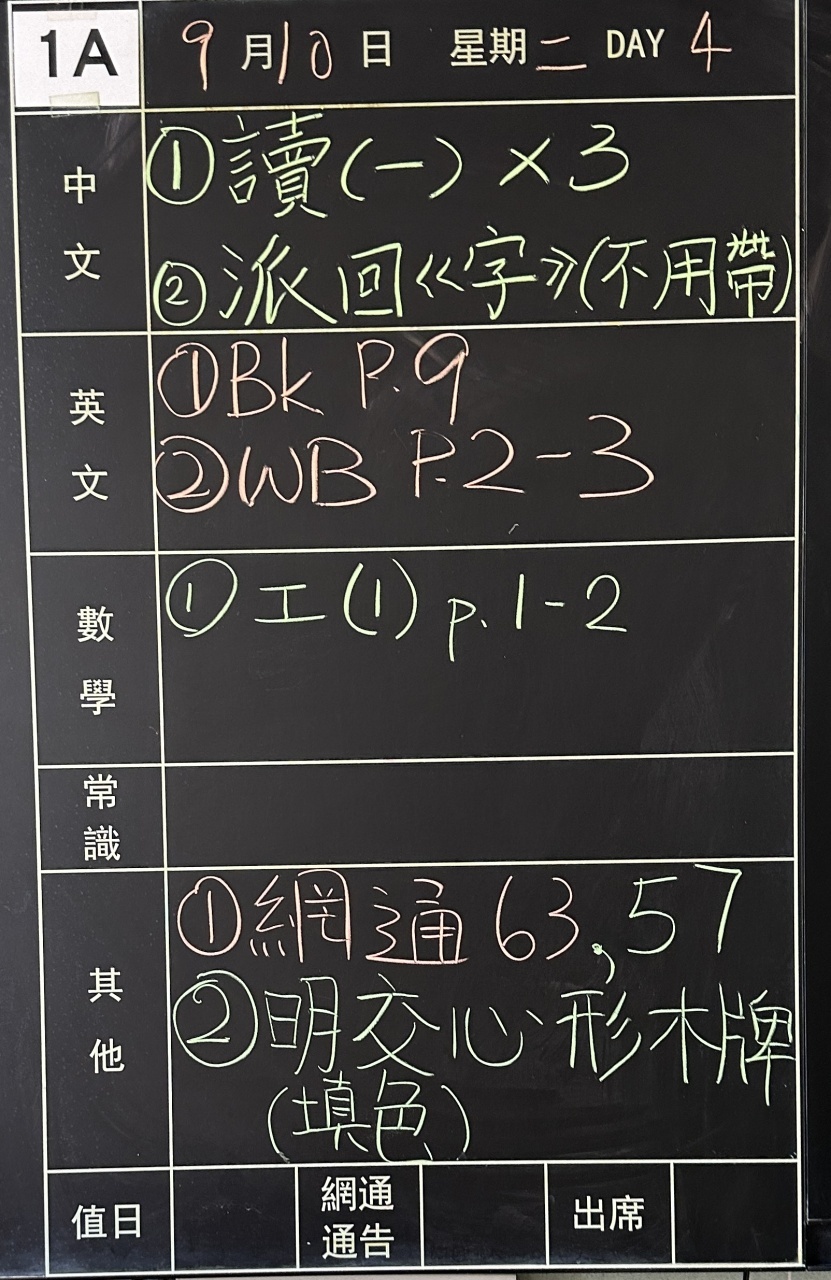 1A 9月10日 星期二 DAY 4
中文
①讀(一)×3
②派回《字》(不用帶)
英文
①Bk P.9
②WB P.2-3
數學
①工(1) p.1-2
常識
其他
①網通 63,57
②明交心形木牌
(填色)
值日 網通通告 出席